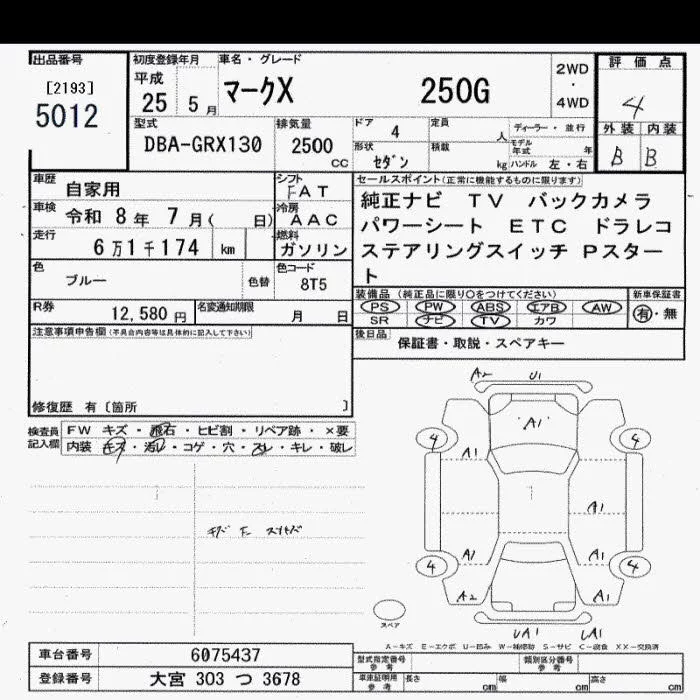 出品番号
[2193]
5012
初度登録年月
平成
25 5 月
車名・グレード
マークX 250G
2WD
・
4WD
評価点
4
外装 内装
B B
型式
DBA-GRX130
排気量
2500
CC
ドア
4
定員
人
形状
セダン
積載
kg
ディーラー・並行
モデル年式 年
ハンドル 左・右
車歴
自家用
シフト
FAT
車検
令和 8年 7月( 日)
冷房
AAC
走行
6万1千174 km
燃料
ガソリン
色
ブルー
色替
色コード
8T5
R券
12,580 円
名変通知期限
月 日
セールスポイント(正常に機能するものに限ります)
純正ナビ TV バックカメラ
パワーシート ETC ドラレコ
ステアリングスイッチ Pスター
ト
装備品 (純正品に限り○をつけてください)
PS PW ABS エアB AW
SR ナビ TV カワ
新車保証書
有・無
後日品
保証書・取説・スペアキー
注意事項申告欄(不具合内容等は具体的に記入して下さい)
修復歴 有〔箇所 〕
検査員
記入欄
FW キズ・飛石・ヒビ割・リペア跡・×要
内装 キズ・汚レ・コゲ・穴・スレ・キレ・破レ
A2 U1
A1
4 4
A1
A1
A1 A1
4 4
A2 A1
UA1 UA1
スペア
A-キズ E-エクボ U-凹み W-補修跡 S-サビ C-腐食 XX-交換済
車台番号
6075437
登録番号
大宮 303 つ 3678
型式指定番号
参考
類別区分番号
参考
車庫証明用
参考
長さ cm
幅 cm
高さ cm